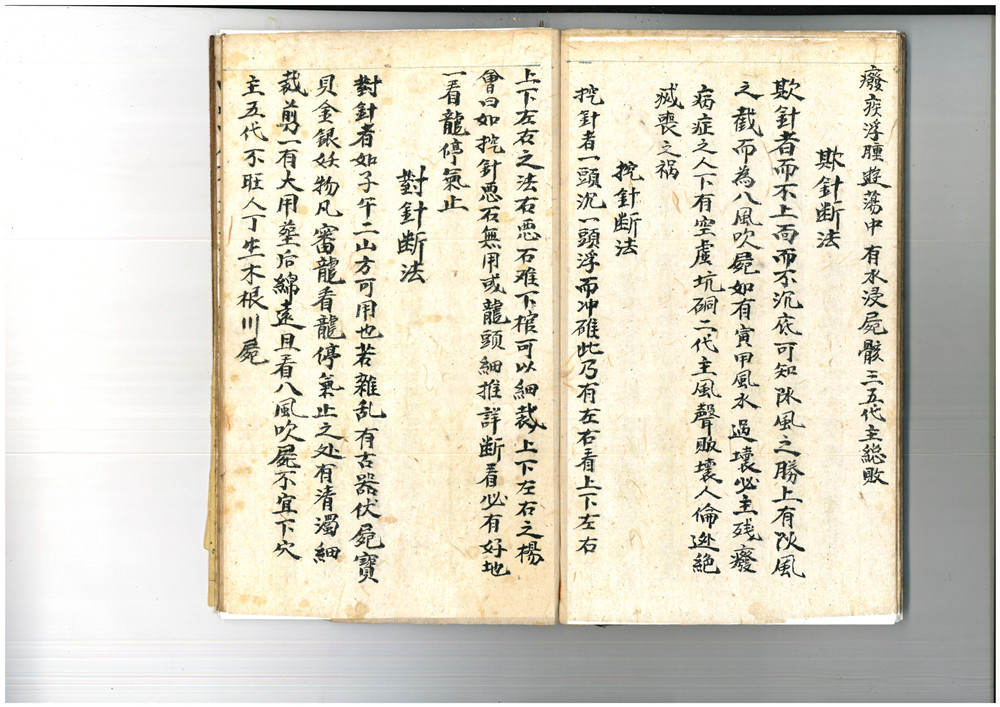 癈疾浮腫遊蕩中有水浸屍骸三五代主総敗
欺針断法
欺針者而不上而而不沉底可知凹風之勝上有凹風
之截而為八風吹屍如有寅甲風水過壞必主残癈
病症之人下有空虛坑硐二代主風聲敗壞人倫逊絕
滅喪之禍
挖針断法
挖針者一頭沉一頭浮而冲碓此乃有左右看上下左右
上下左右之法右恶石难下棺可以細裁上下左右之楊
會曰如挖針恶石無用或龍頭細推詳断看必有好地
一看龍停氣止
對針断法
對針者如子午二山方可用也若雜乱有古器伏屍寶
貝金銀妖物凡審龍看龍停氣止之处有清濁細
裁剪一有大用塟后綿遠且看八風吹屍不宜下穴
主五代不旺人丁生木根川屍